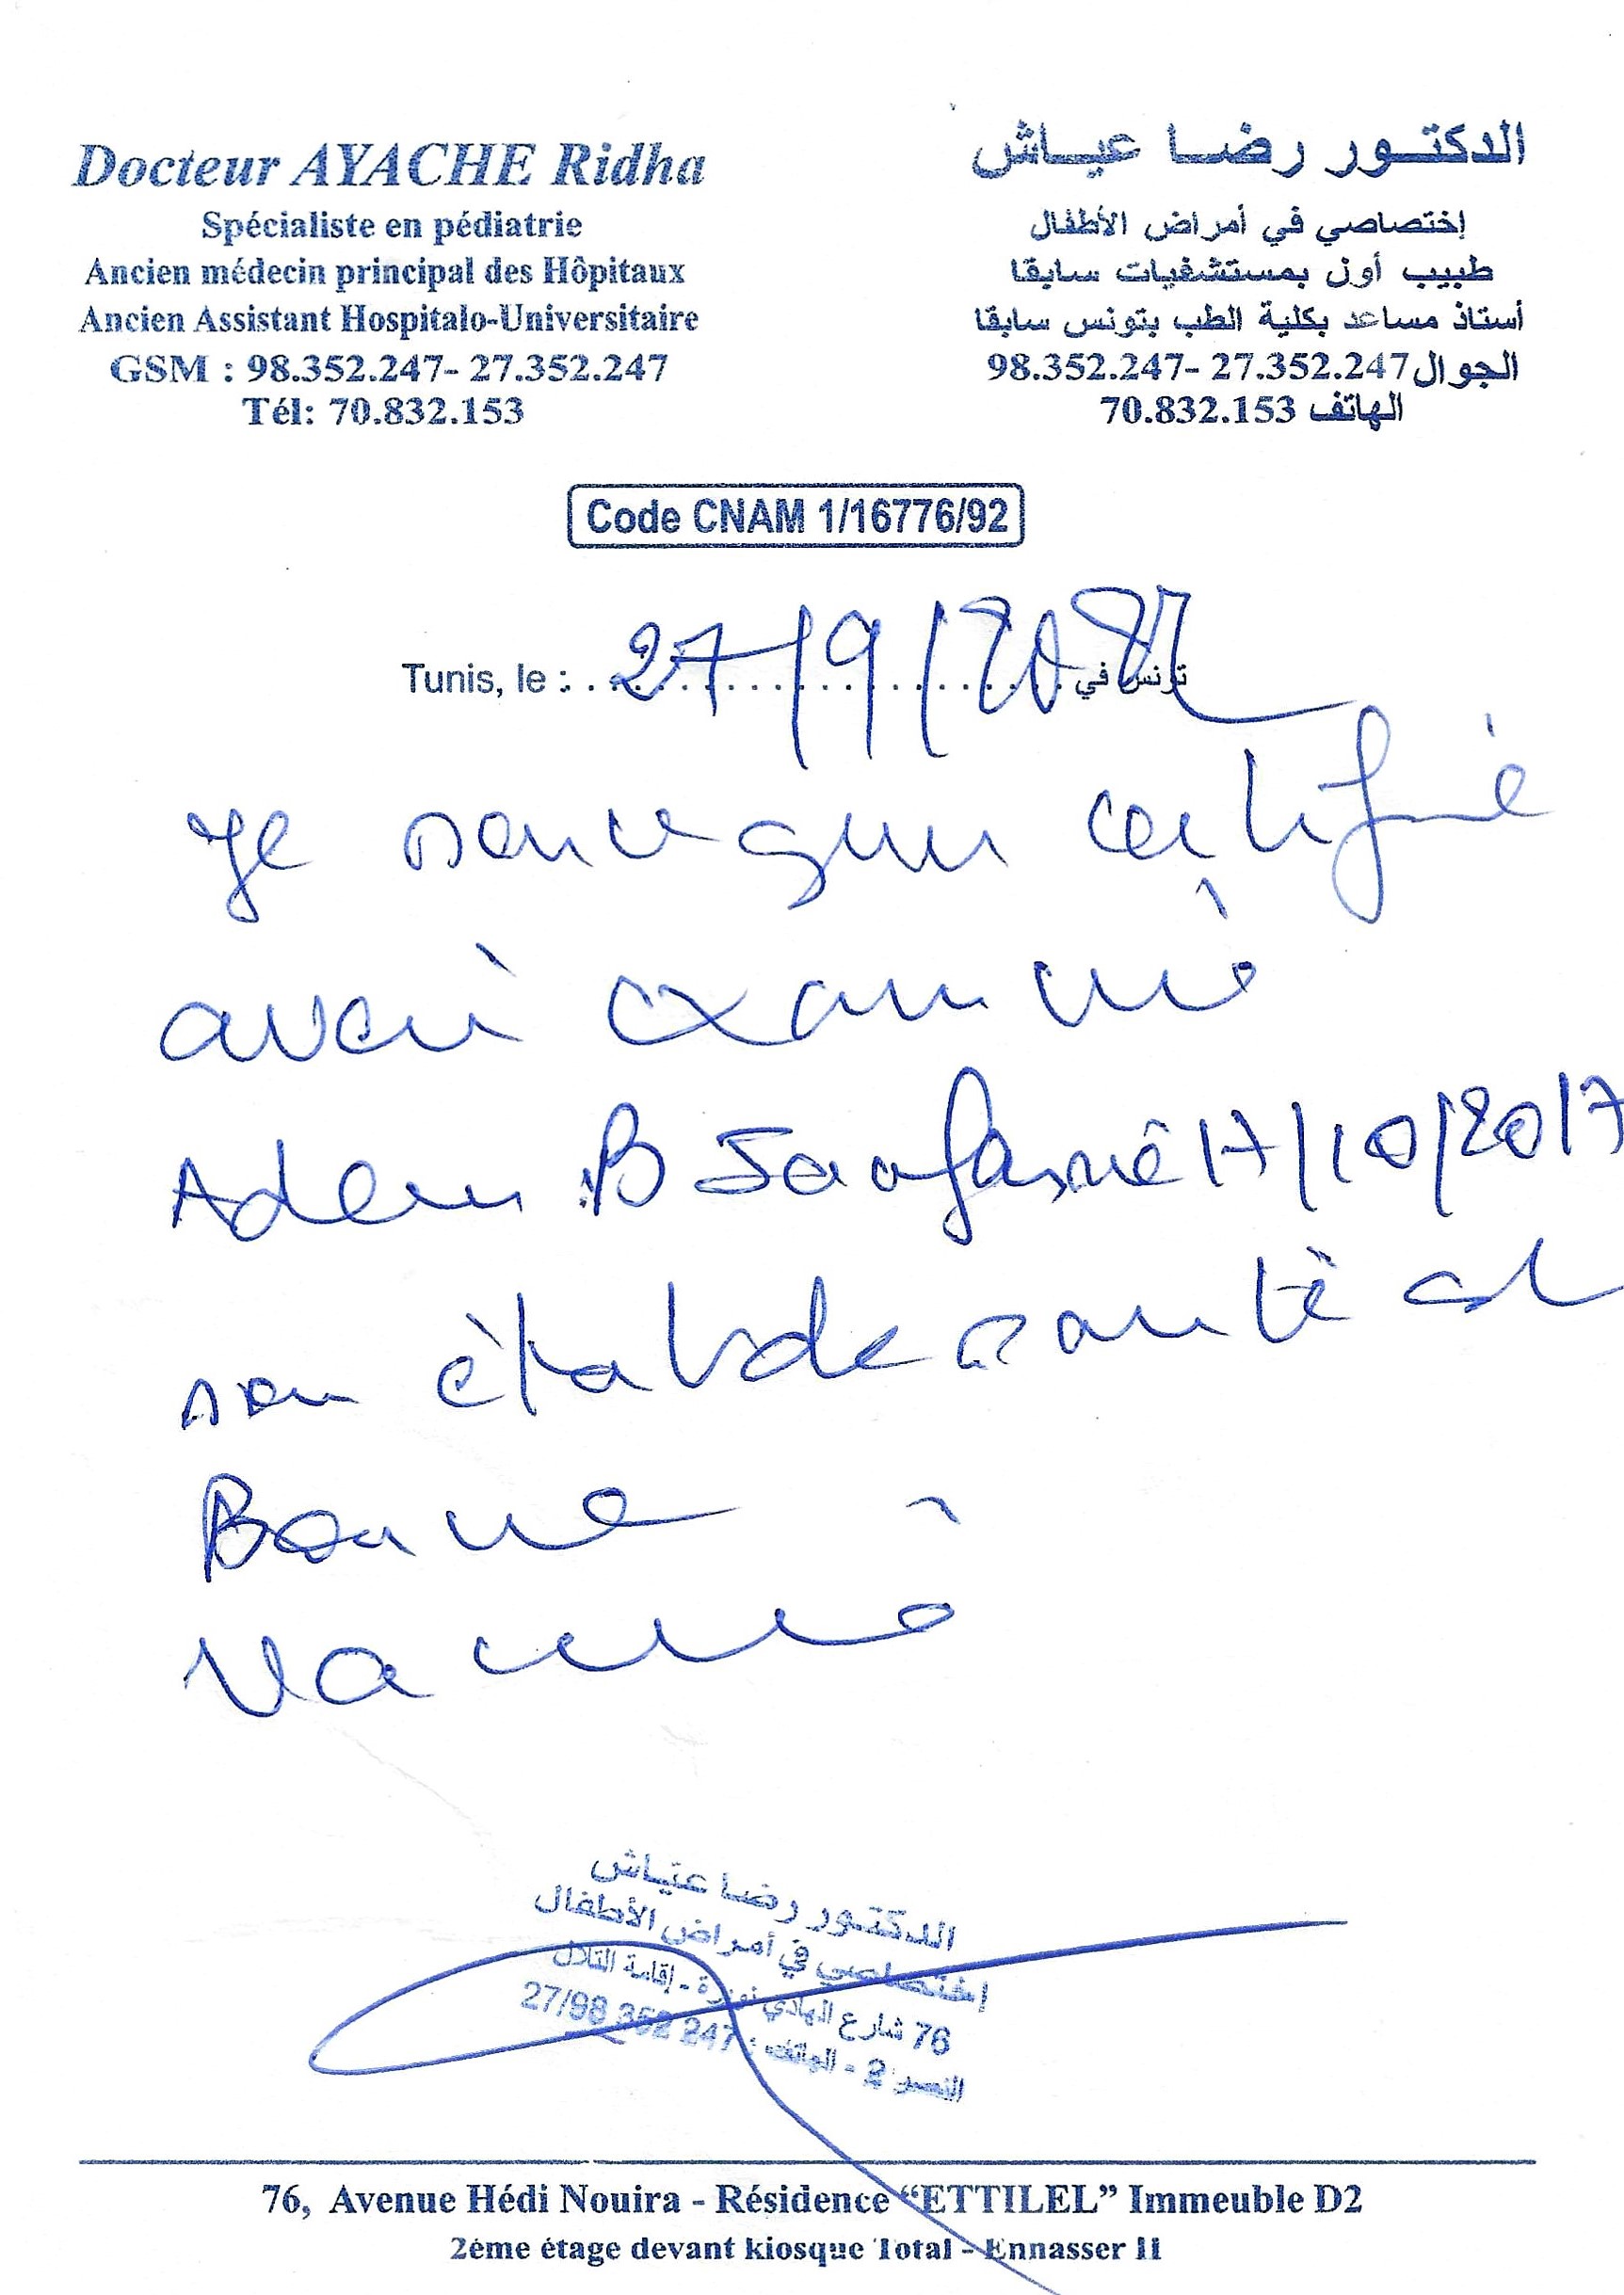 Docteur AYACHE Ridha
Spécialiste en pédiatrie
Ancien médecin principal des Hôpitaux
Ancien Assistant Hospitalo-Universitaire
GSM : 98.352.247- 27.352.247
Tél: 70.832.153
الدكتور رضا عياش
إختصاصي في أمراض الأطفال
طبيب أول بمستشفيات سابقا
أستاذ مساعد بكلية الطب بتونس سابقا
الجوال 98.352.247- 27.352.247
الهاتف 70.832.153
Code CNAM 1/16776/92
Tunis, le : 27/9/ تونس في
Je soussigné certifie
avoir examiné
Adem B né 17/10/2017
son état de santé est
Bonne
Vacciné
الدكتور رضا عيّاش
إختصاصي في أمراض الأطفال
76 شارع الهادي نويرة - إقامة التلال
النصر 2 - الهاتف : 27/98 352 247
76, Avenue Hédi Nouira - Résidence “ETTILEL” Immeuble D2
2ème étage devant kiosque Total - Ennasser II